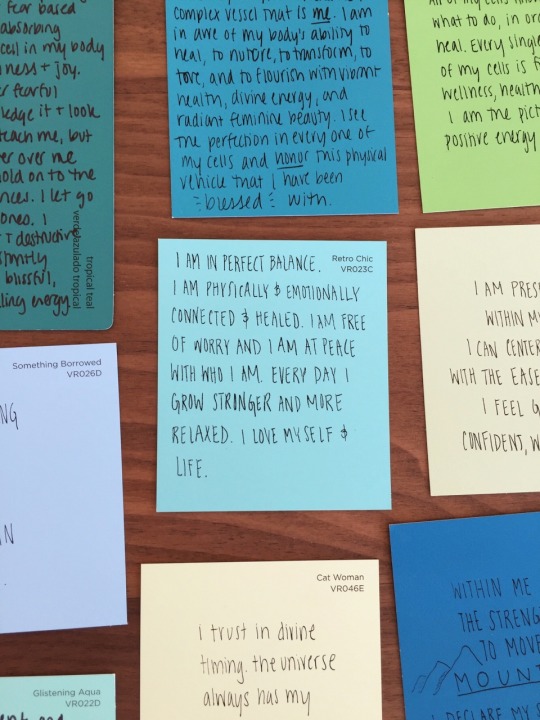 fear based
absorbing
cell in my body
ness + joy.
r fearful
ledge it + look
teach me, but
er over me
hold on to the
nces. I let go
oneo. I
+ destructive
stantly
blissful,
ling energy
tropical teal
verdeazulado tropical
complex vessel that is me. I am
in awe of my body's ability to
heal, to nuture, to transform, to
tore, and to flourish with vibrant
health, divine energy, and
radiant feminine beauty. I see
the perfection in every one of
my cells and honor this physical
vehicle that I have been
blessed with.
what to do, in or
heal. Every singl
of my cells is f
wellness, health
I am the pict
positive energy
Retro Chic
VR023C
I AM IN PERFECT BALANCE.
I AM PHYSICALLY & EMOTIONALLY
CONNECTED & HEALED. I AM FREE
OF WORRY AND I AM AT PEACE
WITH WHO I AM. EVERY DAY I
GROW STRONGER AND MORE
RELAXED. I LOVE MYSELF &
LIFE.
I AM PRES
WITHIN M
I CAN CENTER
WITH THE EASE
I FEEL G
CONFIDENT, W
Something Borrowed
VR026D
NG
N
Cat Woman
VR046E
i trust in divine
timing. the universe
always has my
WITHIN ME
THE STRENG
TO MOVE
MOUNT
I DECLARE MY S
Glistening Aqua
VR022D